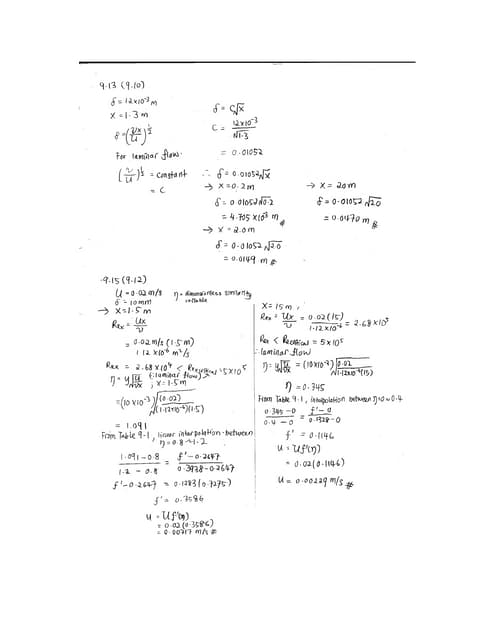 9.13 (9.10)
δ = 12x10⁻³ m
x = 1.3 m
δ = (νx/U)^½
For laminar flow.
(ν/U)^½ = constant
= C
δ = C√x
C = 12x10⁻³/√1.3
= 0.01052
∴ δ = 0.01052√x
→ x = 0.2 m
δ = 0.01052√0.2
= 4.705 x10⁻³ m #
→ x = 2.0 m
δ = 0.01052√2.0
= 0.0149 m #
→ x = 20 m
δ = 0.01052√20
= 0.0470 m #
9.15 (9.12)
U = 0.02 m/s η = dimensionless similarity
δ = 10 mm variable
→ x = 1.5 m
Rex = Ux/ν
= 0.02 m/s (1.5 m)/1.12 x10⁻⁶ m²/s
Rex = 2.68 x 10⁴ < Recritical = 5x10⁵
(: laminar flow)
η = y√(U/νx) ; x = 1.5 m
= (10x10⁻³)√((0.02)/(1.12x10⁻⁶)(1.5))
= 1.091
From Table 9.1, linear interpolation between
η = 0.8 ~ 1.2
(1.091-0.8)/(1.2-0.8) = (f'-0.2647)/(0.3938-0.2647)
f'-0.2647 = 0.1283(0.7275)
f' = 0.3586
u = Uf'(η)
= 0.02(0.3586)
= 0.00717 m/s #
x = 15 m,
Rex = Ux/ν = 0.02(15)/1.12x10⁻⁶ = 2.68 x 10⁵
Rex < Recritical = 5x10⁵
∴ laminar flow
η = y√(U/νx) = (10x10⁻³)√(0.02/(1.12x10⁻⁶)(15))
η = 0.345
From Table 9.1, interpolation between η=0 ~ 0.4
(0.345-0)/(0.4-0) = (f'-0)/(0.1328-0)
f' = 0.1146
u = Uf'(η)
= 0.02(0.1146)
u = 0.00229 m/s #